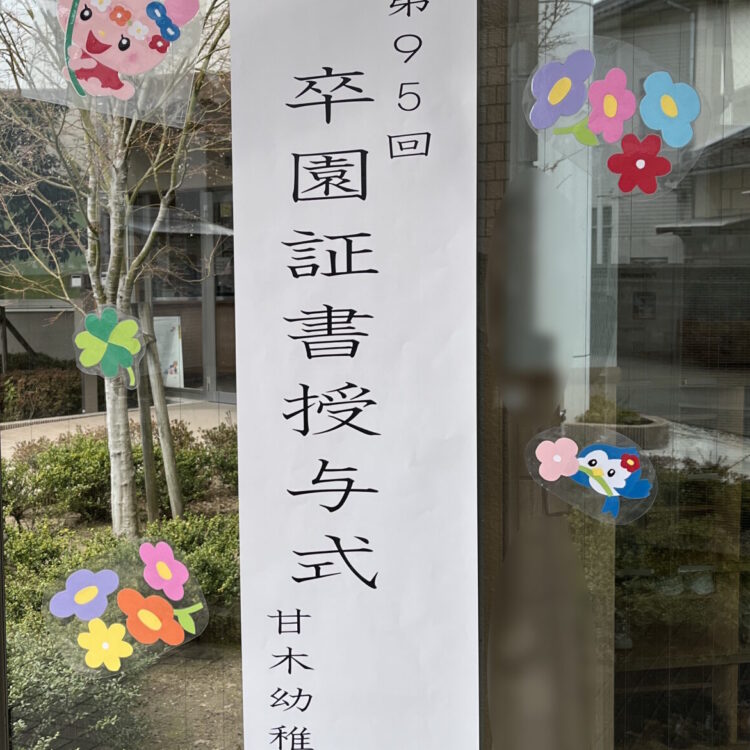 第95回
卒園証書授与式
甘木幼稚